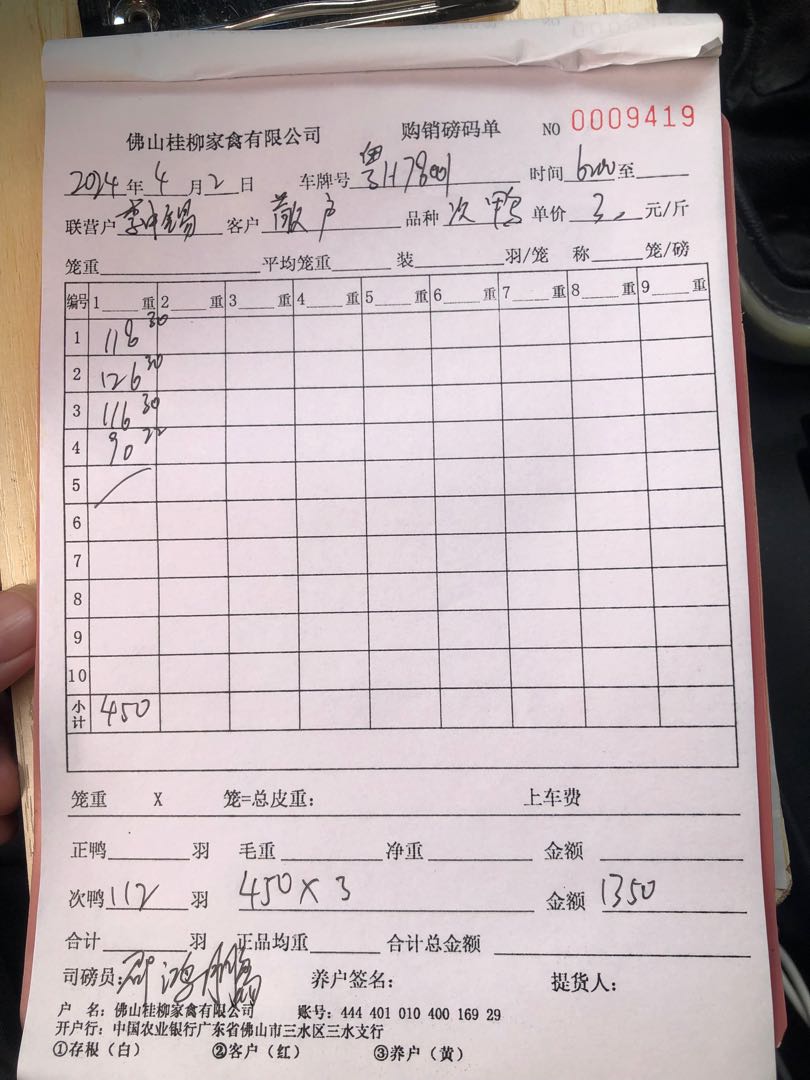 佛山桂柳家禽有限公司 购销磅码单 NO 0009419
2024年4月2日 车牌号 粤H78001 时间 6:00至
联营户 李 锡 客户 散户 品种 次鸭 单价 3. 元/斤
笼重 平均笼重 装 羽/笼 称 笼/磅
编号 1 重 2 重 3 重 4 重 5 重 6 重 7 重 8 重 9 重
1 118 30
2 126 30
3 116 30
4 90 22
5
6
7
8
9
10
小计 450
笼重 X 笼=总皮重: 上车费
正鸭 羽 毛重 净重 金额
次鸭 112 羽 450×3 金额 1350
合计 羽 正品均重 合计总金额
司磅员: 邓鸿鹏 养户签名: 提货人:
户 名: 佛山桂柳家禽有限公司 账号: 444 401 010 400 169 29
开户行: 中国农业银行广东省佛山市三水区三水支行
①存根(白) ②客户(红) ③养户(黄)